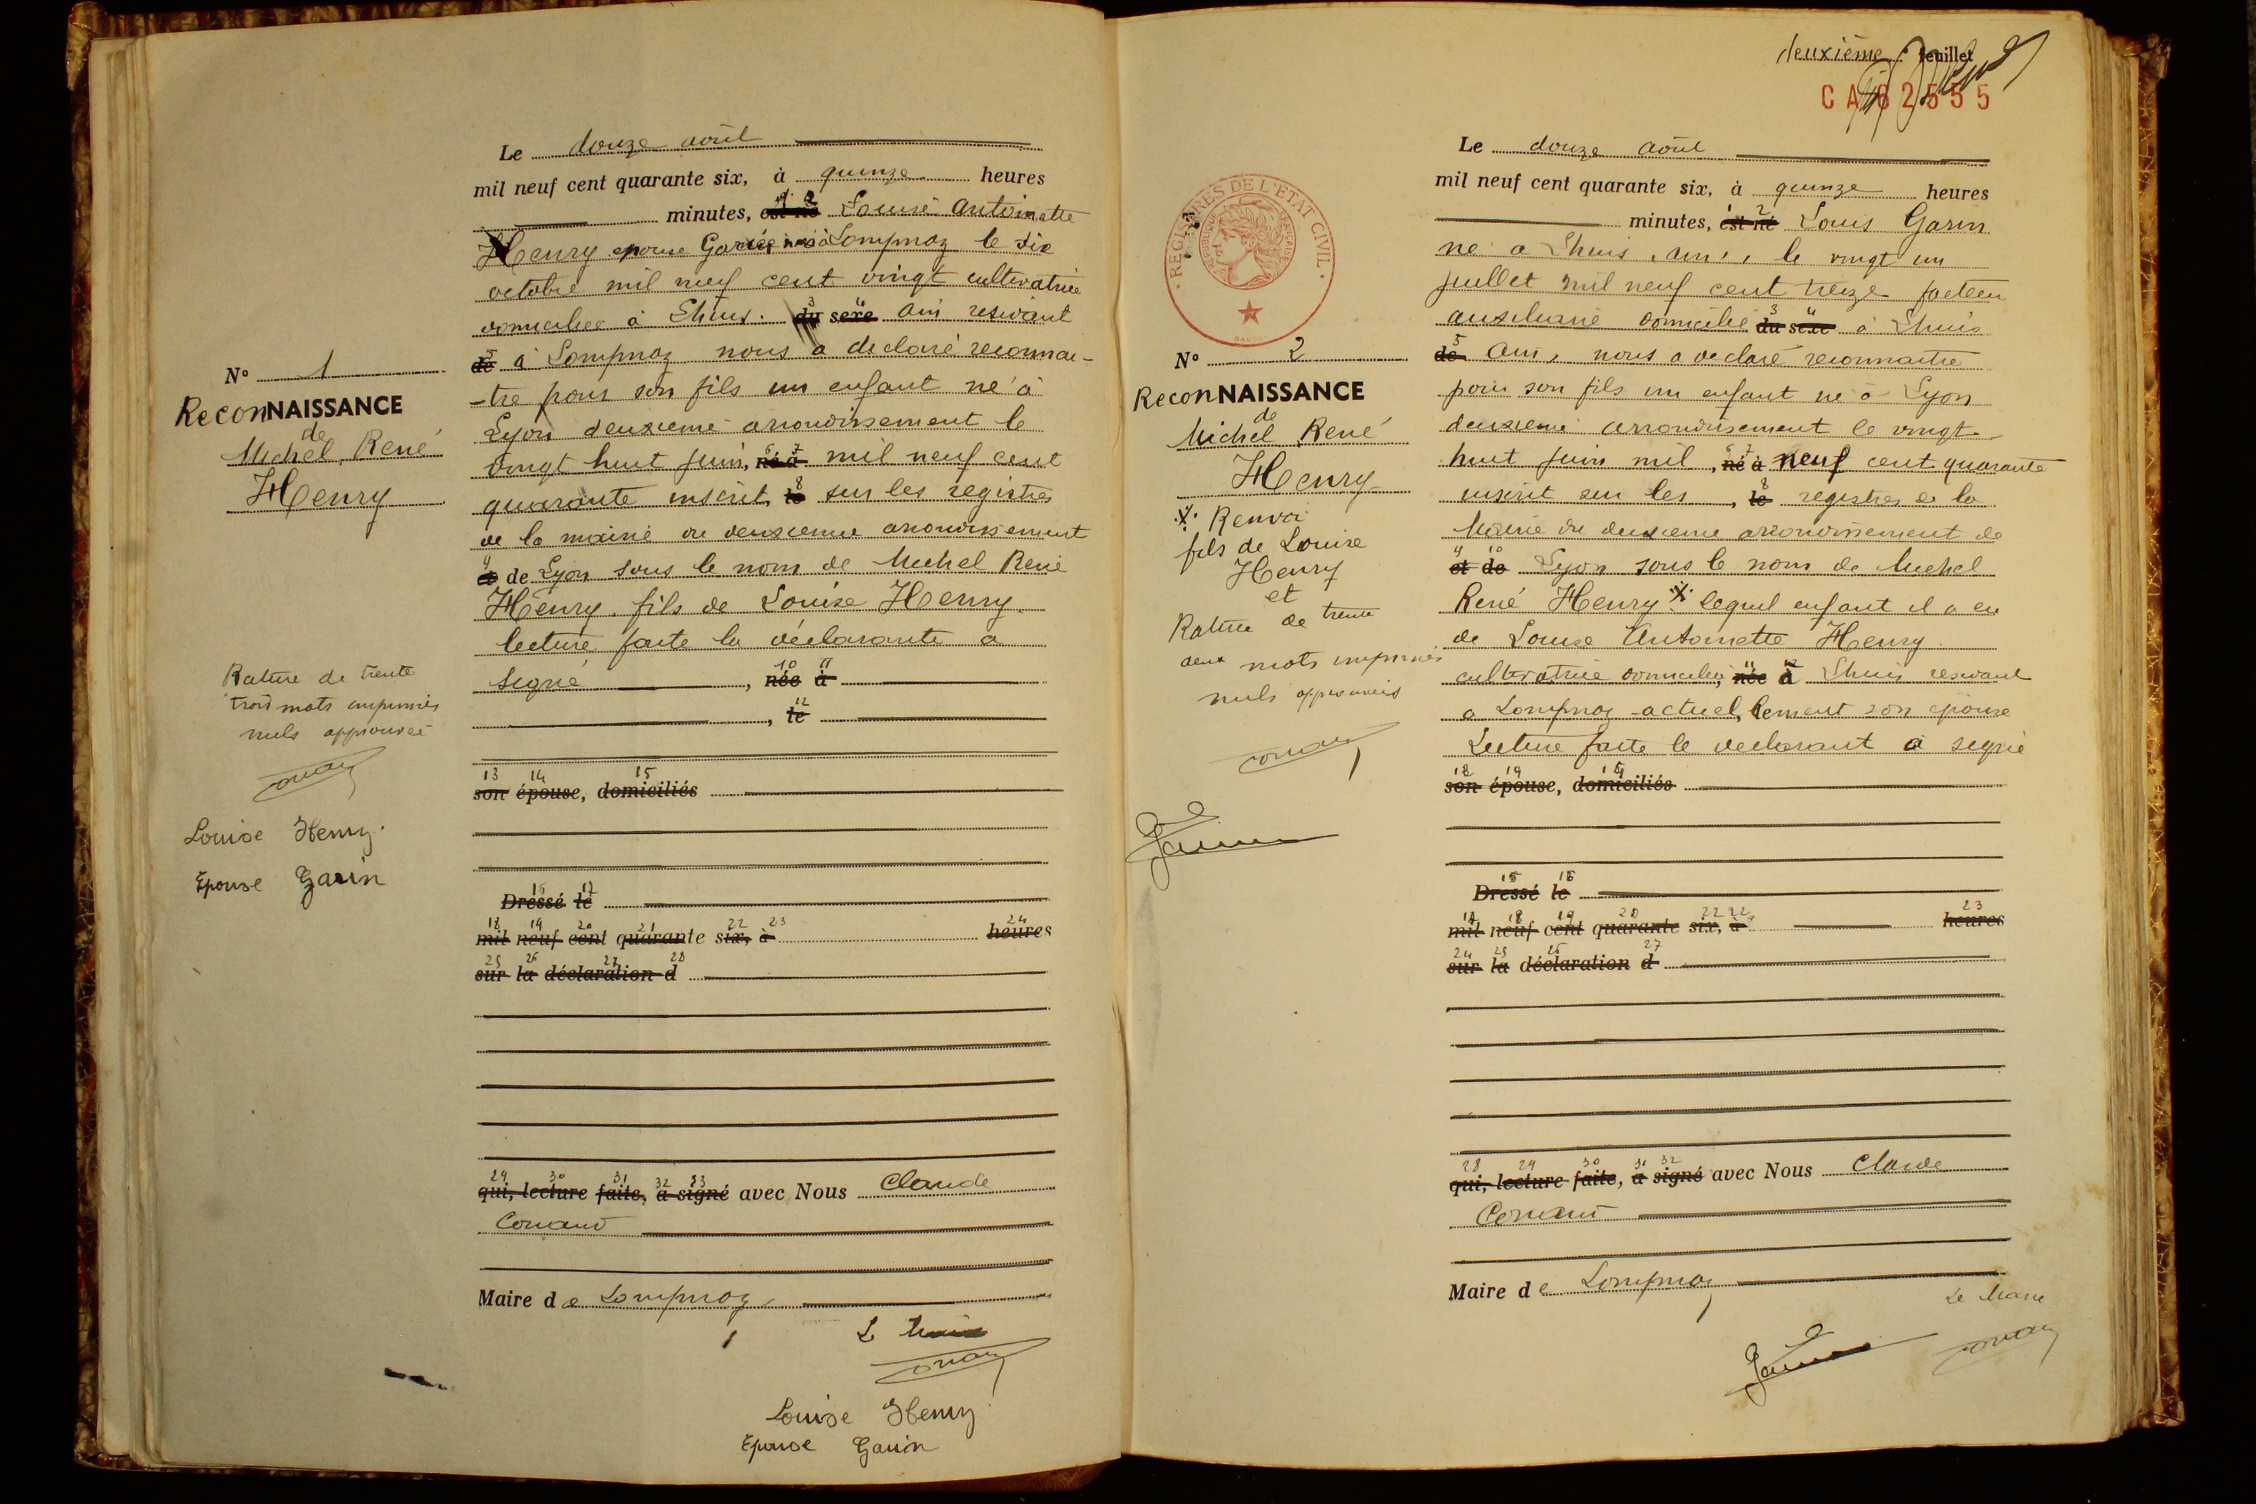 N° 1
ReconNAISSANCE
de
Michel, René
Henry
Rature de trente
trois mots imprimés
nuls approuvée
Louise Henry.
Epouse Garin
Le douze août
mil neuf cent quarante six, à quinze heures
minutes, est né Louise Antoinette
Henry epouse Garin née à Lompnaz le dix
octobre mil neuf cent vingt cultivatrice
domiciliée à Lhuis. du sexe Ain residant
de à Lompnaz nous a declaré reconnai-
-tre pour son fils un enfant né à
Lyon deuxieme arrondissement le
vingt huit juin, né à mil neuf cent
quarante inscrit, le sur les registres
de la mairie du deuxieme arrondissement
et de Lyon sous le nom de Michel René
Henry. fils de Louise Henry.
lecture faite la déclarante a
signé , née à
, le
son épouse, domiciliés
Dressé le
mil neuf cent quarante six, à heures
sur la déclaration d
qui, lecture faite, a signé avec Nous Claude
Conand
Maire de Lompnaz
Le Maire
Louise Henry
Epouse Garin
deuxième feuillet
CA 62555
REGISTRES DE L'ETAT CIVIL
N° 2
ReconNAISSANCE
de
Michel René
Henry
Renvoi
fils de Louise
Henry
et
Rature de trente
deux mots imprimés
nuls approuvés
Le douze août
mil neuf cent quarante six, à quinze heures
minutes, est né Louis Garin
né à Lhuis, Ain, le vingt un
juillet mil neuf cent treize facteur
auxiliaire domicilié du sexe à Lhuis
de Ain, nous a declaré reconnaitre
pour son fils un enfant né à Lyon
deuxieme arrondissement le vingt
huit juin mil, né à neuf cent quarante
inscrit sur les, le registres de la
Mairie du deuxieme arrondissement de
et de Lyon sous le nom de Michel
René Henry lequel enfant il a eu
de Louise Antoinette Henry
cultivatrice domiciliée, née à Lhuis residant
a Lompnaz actuel, lement son épouse
Lecture faite le declarant a signé
son épouse, domiciliés
Dressé le
mil neuf cent quarante six, à heures
sur la déclaration d
qui, lecture faite, a signé avec Nous Claude
Conand
Maire de Lompnaz
Le Maire